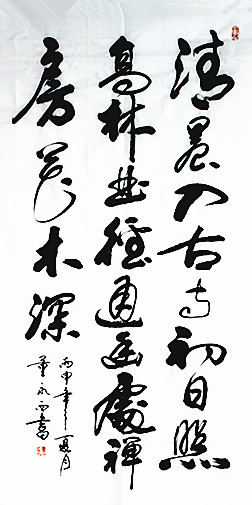 清晨入古寺初日照
高林曲徑通幽處禪
房花木深
丙申年夏月
董永西書